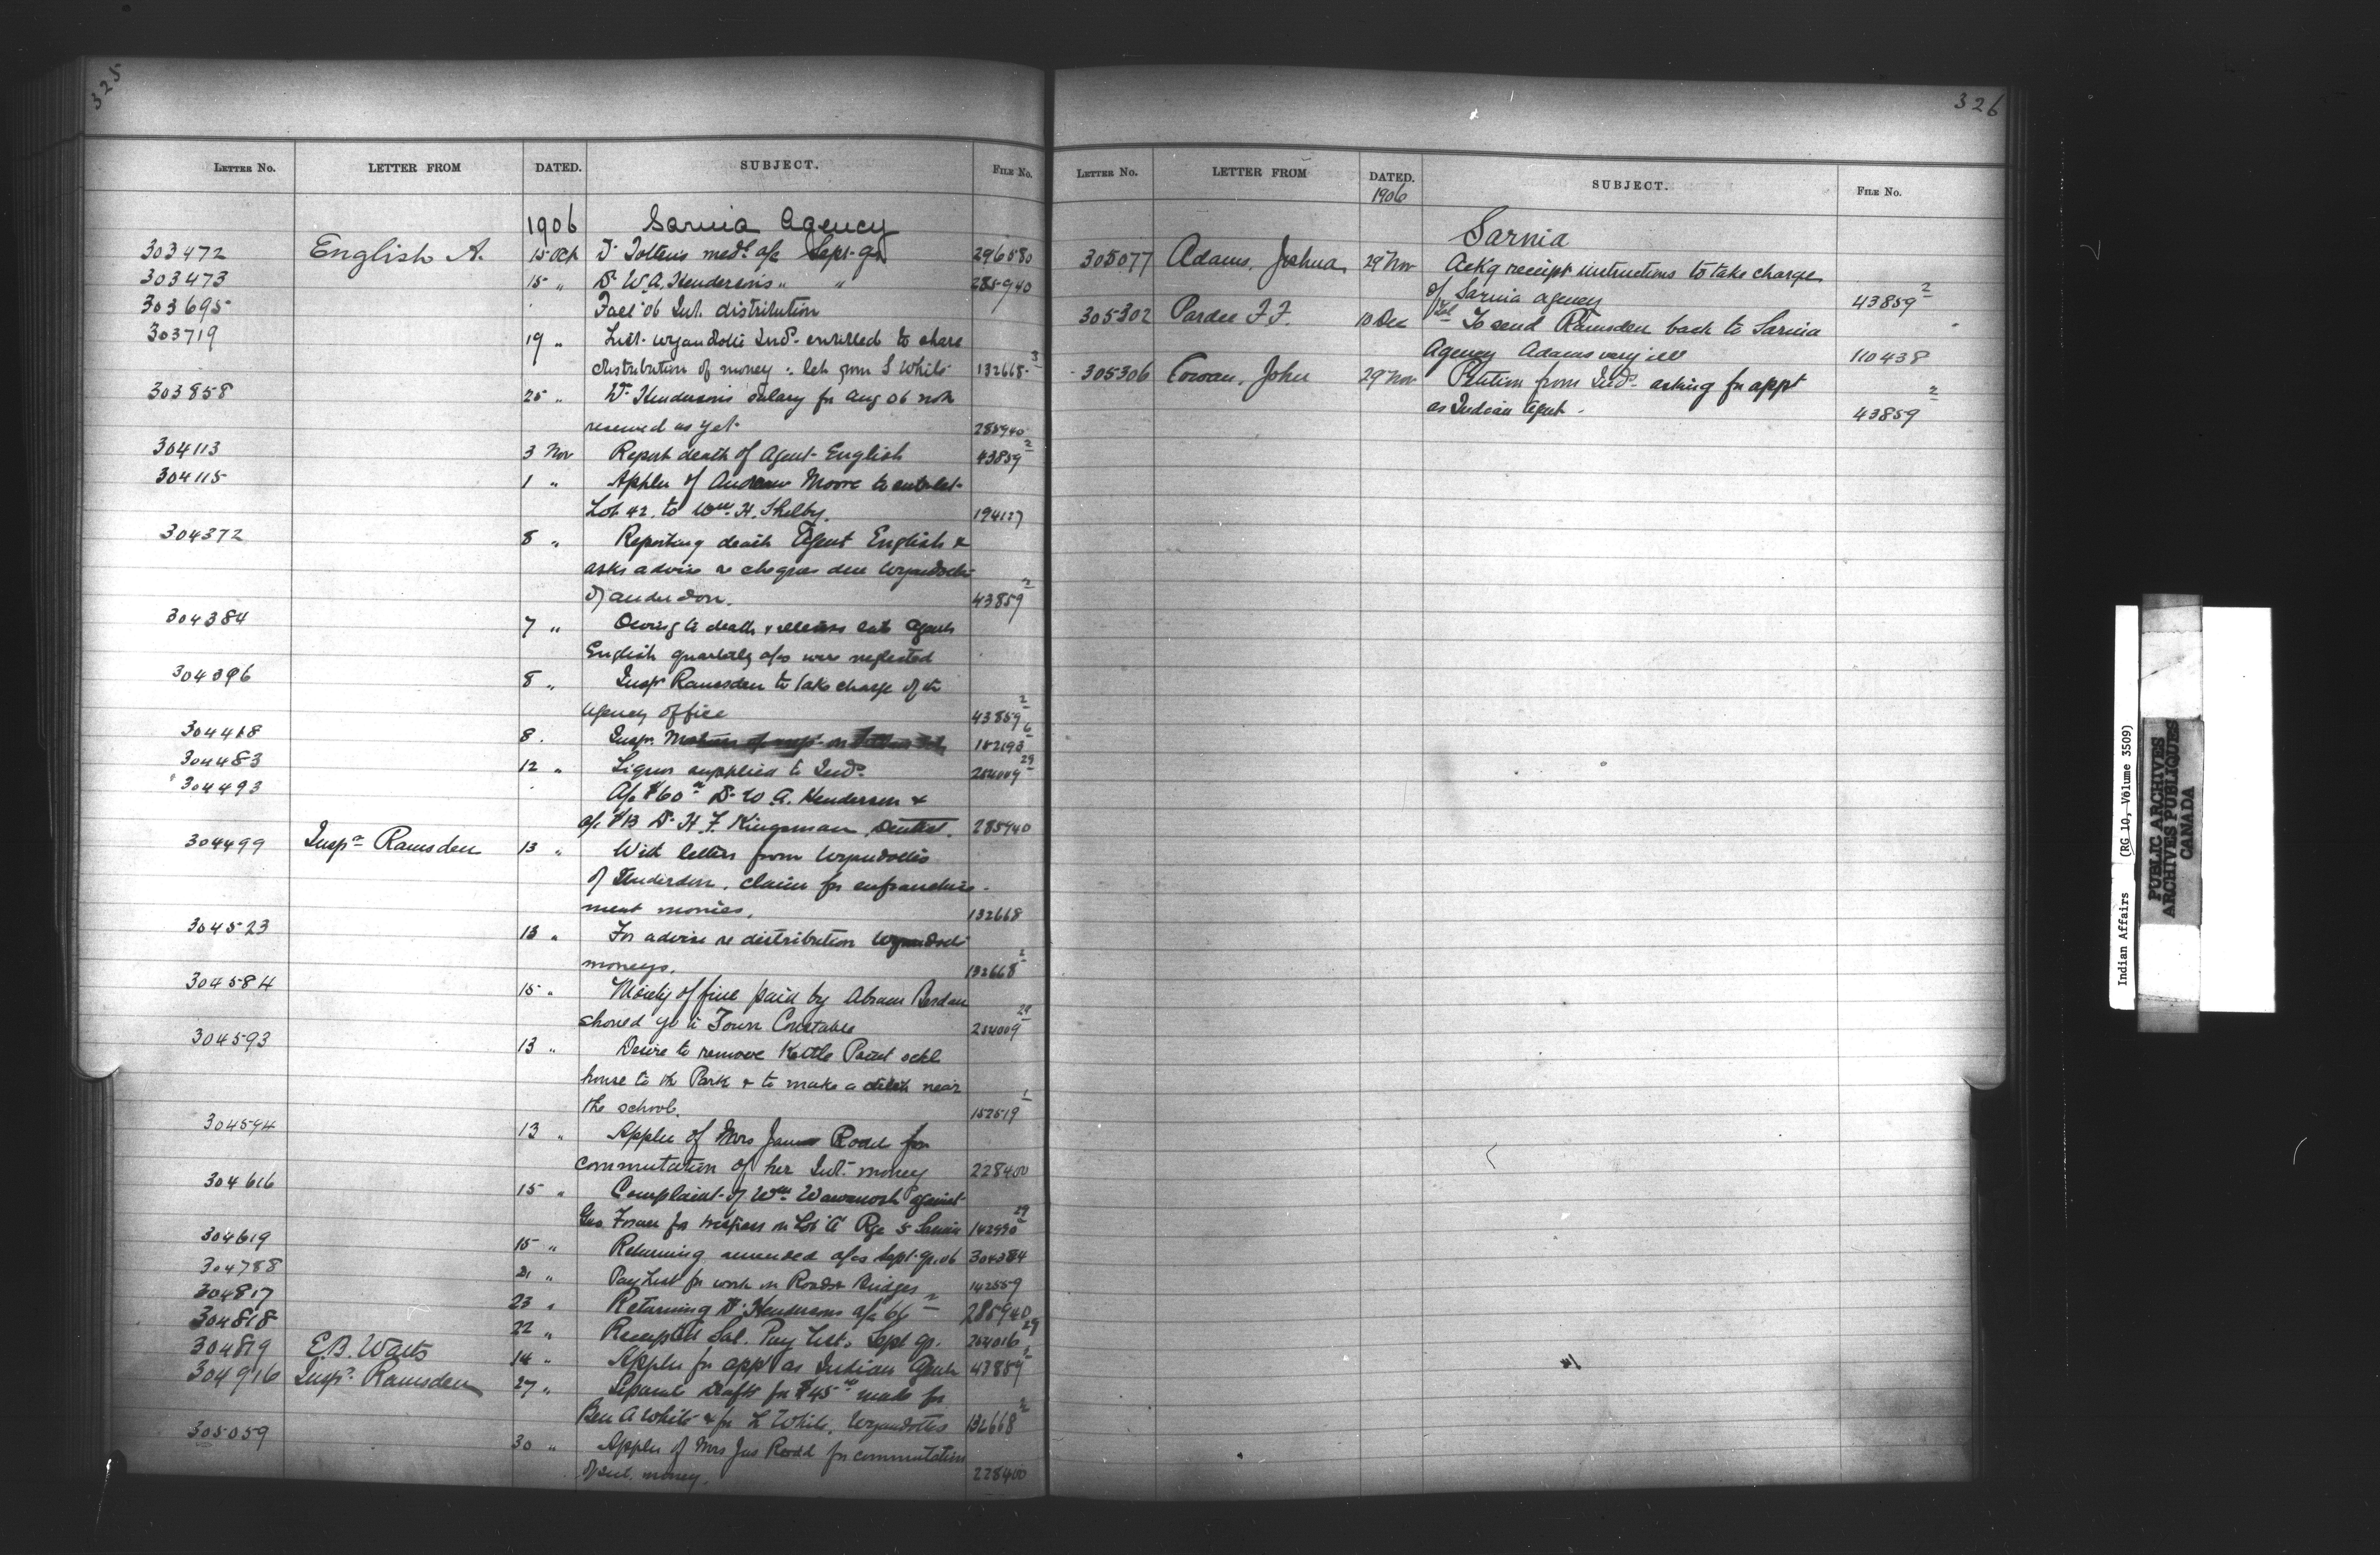 325
LETTER NO. LETTER FROM DATED. SUBJECT. FILE NO.
1906 Sarnia Agency
303472 English A. 15 Oct Dr Tottens medl a/c Sept. qr 296580
303473 15 " Dr W.A. Hendersons " " 285940
303695 Fall 06 Int. distribution
303719 19 " List Wyandotte Inds. enrolled to share
distribution of money : let from S White 132668-3
303858 25 " Dr Henderson's salary for Aug 06 not
received as yet. 285940
304113 3 Nov Report death of Agent English 43859 2
304115 1 " Applcn of Andrew Moore to sublet
Lot 42. to Wm. H. Shelby. 194127
304372 8 " Reporting death Agent English &
asks advise re cheques due Wyandotts
of Anderdon. 43859 2
304384 7 " Owing to death & illness late Agent
English quarterly a/cs were neglected
304396 8 " Inspr Ramsden to take charge of the
Agency office 43859 2
304468 8. Inspr. 182193 6
304483 12 " Liquor supplied to Inds. 254009 29
304493 A/c $60 Dr. W A. Henderson &
a/c $13 Dr. H. F. Kingsman, Dentist. 285940
304499 Inspr Ramsden 13 " With letters from Wyandottes
of Anderdon, claim for enfranchise-
ment monies. 132668
304523 13 " For advise re distribution Wyandott
moneys. 132668 2
304584 15 " Moiety of fine paid by Abram
should go to Town Constable 254009 29
304593 13 " Desire to remove Kettle Point schl
house to the Park & to make a ditch near
the school. 152519 1
304594 13 " Applcn of Mrs James Rodd for
commutation of her Int. money 228400
304616 15 " Complaint of Wm Wawanosh against
Geo. for trespass on Lot A Rge 5 Sarnia 142990 29
304619 15 " Returning amended a/cs Sept. qr. 06 304384
304788 21 " Pay List for work on Roads & Bridges 142559
304817 23 " Returning Dr. Hendersons a/c 66 285940
304818 22 " Receipted Sal. Pay List. Sept qr. 254016 29
304819 E.B. Watts 14 " Applcn for appt as Indian Agent 43859 2
304916 Inspr. Ramsden 27 " Separate drafts for $45 made for
Ben A White & for L White, Wyandottes 132668 2
305059 30 " Applcn of Mrs Jas Rodd for commutation
of Int. money. 228400
326
LETTER NO. LETTER FROM DATED. SUBJECT. FILE NO.
1906
Sarnia
305077 Adams, Joshua, 29 Nov Ackg receipt instructions to take charge
of Sarnia agency 43859 2
305302 Pardee F.F. 10 Dec Tel To send Ramsden back to Sarnia
Agency Adams very ill 110438
305306 Cowan, John 29 Nov Petition from Inds. asking for appt
as Indian Agent. 43859 2
Indian Affairs (RG 10, Volume 3509)
PUBLIC ARCHIVES
ARCHIVES PUBLIQUES
CANADA